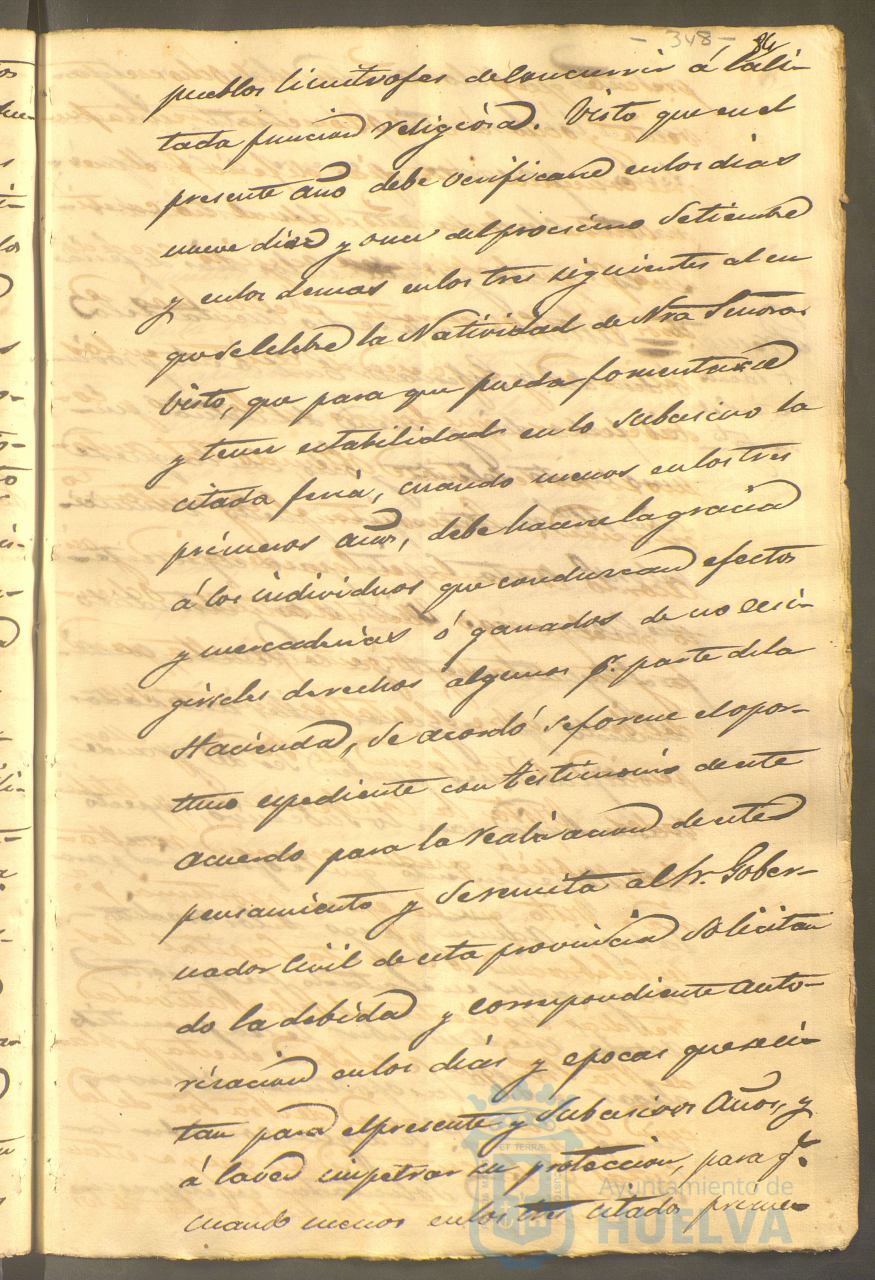 - 348 -
84
pueblos limitrofes de concurrir á la ci-
tada funcion religiosa. Visto que en el
presente año debe verificarse en los dias
nueve diez y once del procsimo Setiembre
y en los demas en los tres siguientes al en
que se celebre la Natividad de Ntra Señora.
Visto, que para que pueda fomentarse
y tener estabilidad en lo subcesivo la
citada feria, cuando menos en los tres
primeros años, debe hacerse la gracia
á los individuos que conduzcan efectos
y mercaderias ó ganados de no ecsi-
girseles derechos algunos pr. parte de la
Hacienda, se acordó se forme el opor-
tuno espediente con testimonio de este
acuerdo para la realizacion de este
pensamiento y se remita al Sr. Gober-
nador Civil de esta provincia solicitan
do la debida y correspondiente auto-
rizacion en los dias y epocas que se ci-
tan para el presente y subcesivos años, y
á la vez impetrar su proteccion, para qe.
cuando menos en los tres citados prime-
Ayuntamiento de
HUELVA